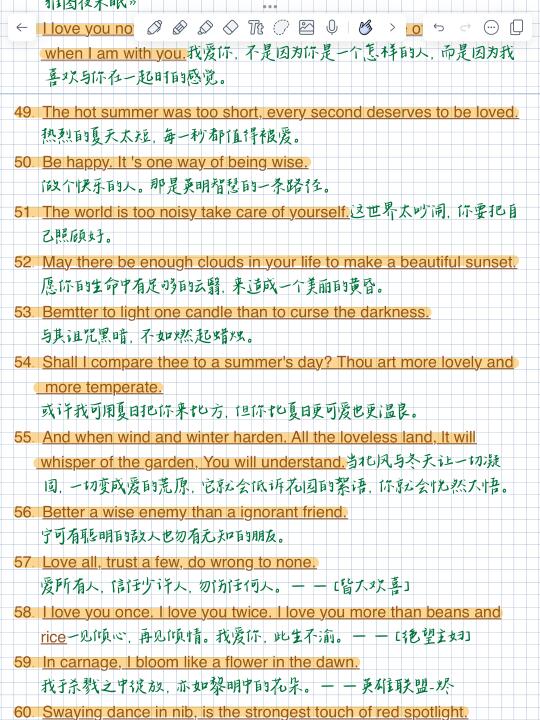 I love you no
when I am with you.我爱你, 不是因为你是一个怎样的人, 而是因为我
喜欢与你在一起时的感觉。
49. The hot summer was too short, every second deserves to be loved.
热烈的夏天太短, 每一秒都值得被爱。
50. Be happy. It 's one way of being wise.
做个快乐的人。那是英明智慧的一条路径。
51. The world is too noisy take care of yourself.这世界太吵闹, 你要把自
己照顾好。
52. May there be enough clouds in your life to make a beautiful sunset.
愿你的生命中有足够的云翳, 来造成一个美丽的黄昏。
53. Bemtter to light one candle than to curse the darkness.
与其诅咒黑暗, 不如燃起蜡烛。
54. Shall I compare thee to a summer's day? Thou art more lovely and
more temperate.
或许我可用夏日把你来比方, 但你比夏日更可爱也更温良。
55. And when wind and winter harden, All the loveless land, It will
whisper of the garden, You will understand.当北风与冬天让一切凝
固, 一切变成爱的荒原, 它就会低诉花园的絮语, 你就会恍然大悟。
56. Better a wise enemy than a ignorant friend.
宁可有聪明的敌人也勿有无知的朋友。
57. Love all, trust a few, do wrong to none.
爱所有人, 信任少许人, 勿伤任何人。— — [皆大欢喜]
58. I love you once. I love you twice. I love you more than beans and
rice一见倾心, 再见倾情。我爱你, 此生不渝。— — [绝望主妇]
59. In carnage, I bloom like a flower in the dawn.
我于杀戮之中绽放, 亦如黎明中的花朵。— — 英雄联盟-烬
60. Swaying dance in nib, is the strongest touch of red spotlight,